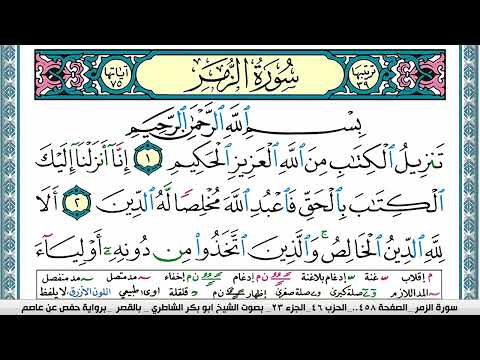 ترتيبها ٣٩ سُورَةُ الزُّمَرِ آياتها ٧٥
بِسْمِ ٱللَّهِ ٱلرَّحْمَٰنِ ٱلرَّحِيمِ
تَنزِيلُ ٱلْكِتَٰبِ مِنَ ٱللَّهِ ٱلْعَزِيزِ ٱلْحَكِيمِ ١ إِنَّآ أَنزَلْنَآ إِلَيْكَ
ٱلْكِتَٰبَ بِٱلْحَقِّ فَٱعْبُدِ ٱللَّهَ مُخْلِصًا لَّهُ ٱلدِّينَ ٢ أَلَا
لِلَّهِ ٱلدِّينُ ٱلْخَالِصُ ۚ وَٱلَّذِينَ ٱتَّخَذُوا۟ مِن دُونِهِۦٓ أَوْلِيَآءَ
م إقلاب غنة إدغام بلاغنة ن م إدغام ن م إخفاء مد متصل مد منفصل
المد اللازم صلة كبرى صلة صغرى إظهار ن م قلقلة اوى: طبيعي اللون الأزرق لا يلفظ
سورة الزمر _الصفحة ٤٥٨_ الحزب ٤٦_ الجزء ٢٣ _ بصوت الشيخ ابو بكر الشاطري _ بالقصر _ برواية حفص عن عاصم